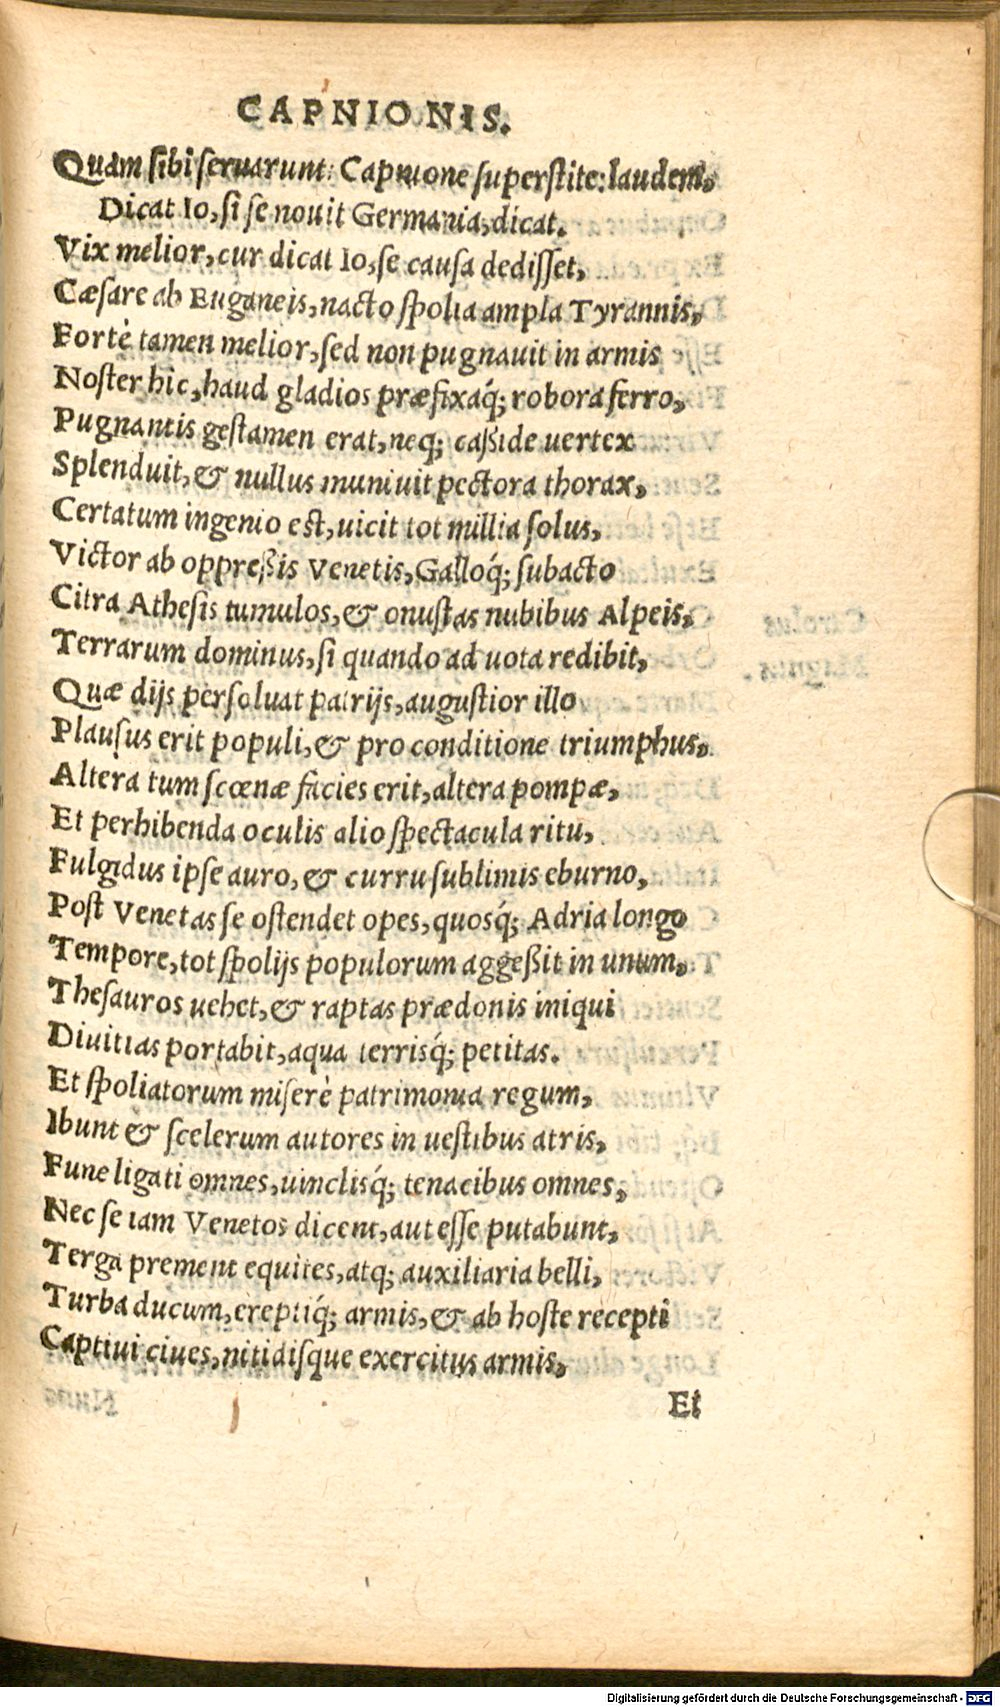 CAPNIONIS.
Quam sibi seruarunt: Capnione superstite: laudem,
Dicat Io, si se nouit Germania, dicat.
Vix melior, cur dicat Io, se causa dedisset,
Cæsare ab Euganeis, nacto spolia ampla Tyrannis,
Fortè tamen melior, sed non pugnauit in armis
Noster hic, haud gladios præfixaq́; robora ferro,
Pugnantis gestamen erat, neq; caßide uertex
Splenduit, & nullus muniuit pectora thorax,
Certatum ingenio est, uicit tot millia solus,
Victor ab oppreßis Venetis, Galloq́; subacto
Citra Athesis tumulos, & onustas nubibus Alpeis,
Terrarum dominus, si quando ad uota redibit,
Quæ dijs persoluat patrijs, augustior illo
Plausus erit populi, & pro conditione triumphus,
Altera tum scœnæ facies erit, altera pompæ,
Et perhibenda oculis alio spectacula ritu,
Fulgidus ipse auro, & curru sublimis eburno,
Post Venetas se ostendet opes, quosq́; Adria longo
Tempore, tot spolijs populorum aggeßit in unum,
Thesauros uehet, & raptas prædonis iniqui
Diuitias portabit, aqua terrisq́; petitas.
Et spoliatorum miserè patrimonia regum,
Ibunt & scelerum autores in uestibus atris,
Fune ligati omnes, uinclisq́; tenacibus omnes,
Nec se iam Venetos dicent, aut esse putabunt,
Terga prement equites, atq; auxiliaria belli,
Turba ducum, ereptiq́; armis, & ab hoste recepti
Captiui ciues, nitidisque exercitus armis,
Et
Digitalisierung gefördert durch die Deutsche Forschungsgemeinschaft - DFG